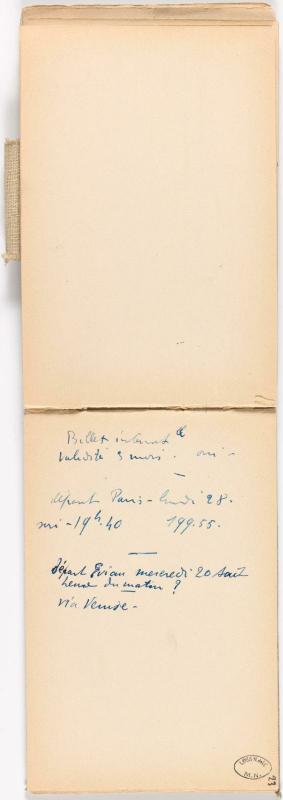 Billet internat le
validité 3 mois. oui -
départ Paris - lundi 28.
- 19h.40 199.55.
Départ Evian mercredi 20 Août
heure du matin ?
via Venise -
M.N.
23